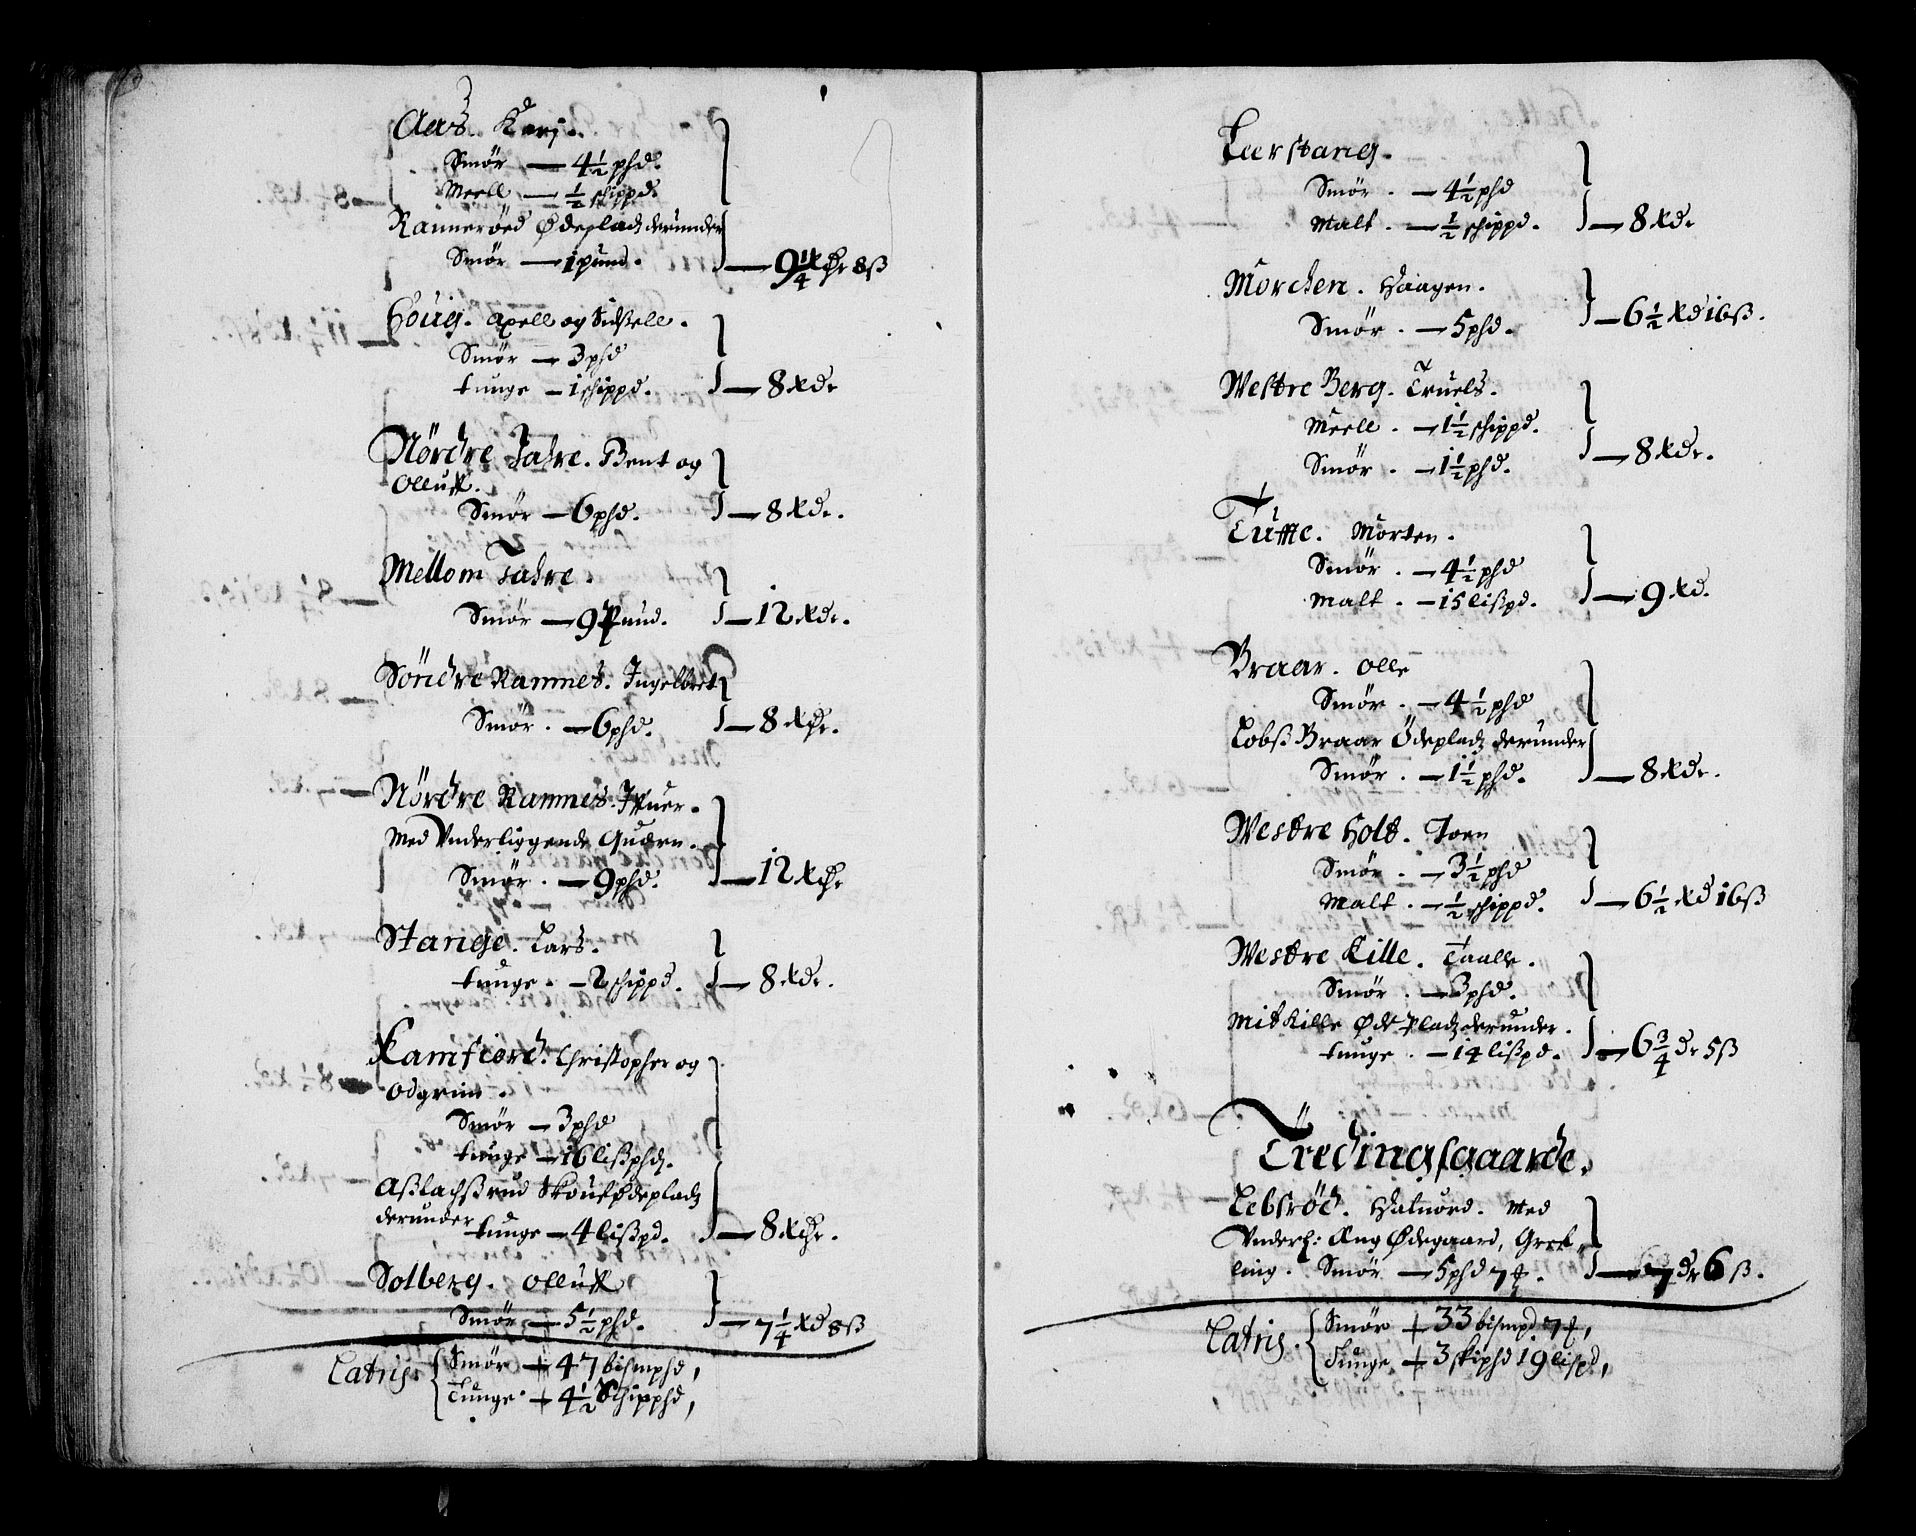 Aas. Karj.
Smör — 4½ phd.
Meell — ½ schippd.
Ranneröed Ødepladz derunder
Smör — 1 pund. — 9¼ Rdr 8ß
Houg. Axell og Sidßell.
Smör — 3 phd
tunge — 1 schippd. — 8 Rdr
Nördre Jahre. Bent og
Olluff.
Smör — 6 phd. — 8 Rdr.
Mellom Jahre.
Smör — 9 Pund. — 12 Rdr.
Söndre Ramnes. Ingebret
Smör. — 6 phd. — 8 Rdr.
Nördre Ramnes. Iffuer.
Med Vnderliggende Quern.
Smör. — 9 phd. — 12 Rdr
Stange. Lars.
tunge. — 2 schippd. — 8 Rdr.
Ramfiord. Christopher og
Odgrim.
Smör — 3 phd
tunge — 16 lißphd.
Aßlachßrud Skouf Ødepladz
derunder tunge — 4 lißpd. — 8 Rdr.
Solberg. Olluff
Smör — 5½ phd. — 7¼ Rd 8ß
Latris. Smör + 47 bismphd,
Tunge + 4½ Schipphd,
Leerstang.
Smör. — 4½ phd
Malt. — ½ schippd. — 8 Rdr
Morcken. Haagen.
Smör. — 5 phd. — 6½ Rd 16ß.
Westre Berg. Truels.
Meell. — 1½ schippd.
Smör. — 1½ phd. — 8 Rdr.
Tuffte. Morten.
Smör. — 4½ phd
Malt. — 15 lißpd. — 9 Rd.
Braar. Olle
Smör. — 4½ phd
Lobß Braar Ödepladz derunder
Smör. — 1½ phd. — 8 Rdr.
Westre Holt. Joen
Smör. — 3½ phd
Malt. — ½ schippd. — 6½ Rd 16ß
Westre Lille. Taalle.
Smör. — 3 phd.
Mit Lille Øde Pladz derunder.
tunge. — 14 lißpd. — 6¾ dr 5ß
Tredingsgaarde.
Lebsröd. Haluord. Med
Vnderl: Aug Ødegaard, Gref
ling. Smör — 5 phd 7 — 7 dr 6 ß.
Latris. Smör + 33 bismpd 7,
Tunge + 3 skiphd 19 lispd,